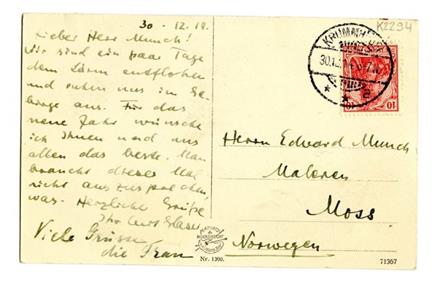 30.12.18.
Lieber Herr Munch!
Wir sind ein paar Tage
dem Lärm entflohen
und ruhen uns im Ge-
birge aus. Für das
neue Jahr wünsche
ich Ihnen und uns
allen das beste. Man
braucht dieses Mal
nicht auszusprechen,
was. Herzliche Grüße
Ihr Curt Glaser
Viele Grüsse
die Frau
K2294
KRUMMH
10
Herrn Edvard Munch
Maleren
Moss
Norwegen
Nr. 1390.
71367